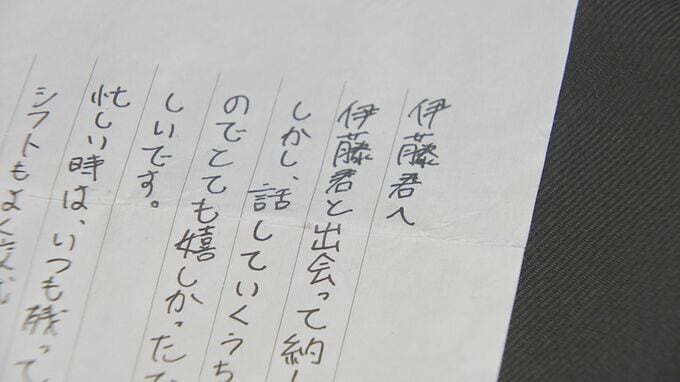 伊藤君へ
伊藤君と出会って約
しかし、話していくうち
のでとても嬉しかった
しいです。
忙しい時は、いつも残って
シフトもよく